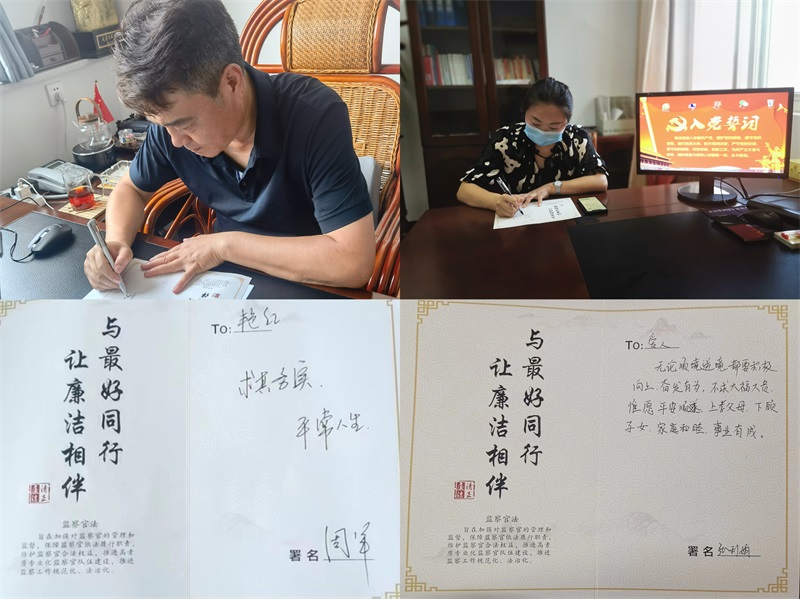 入党誓词
与最好同行
让廉洁相伴
监察官法
旨在加强对监察官的管理和
监督，保障监察官依法履行职责，
维护监察官合法权益，推进高素
质专业化监察官队伍建设，推进
监察工作规范化、法治化。
To: 艳红
平常人生
署名 周军
与最好同行
让廉洁相伴
监察官法
旨在加强对监察官的管理和
监督，保障监察官依法履行职责，
维护监察官合法权益，推进高素
质专业化监察官队伍建设，推进
监察工作规范化、法治化。
To: 爱人
无论顺境逆境都要积极
向上、奋发有为，不求大福大贵，
惟愿平安顺遂、上孝父母、下
子女、家庭和睦、事业有成。
署名